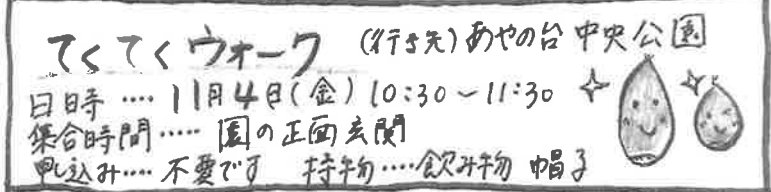 てくてくウォーク (行き先)あやの台中央公園
日時‥‥11月4日(金)10:30〜11:30
集合時間‥‥‥園の正面玄関
申し込み‥‥不要です 持ち物‥‥飲み物 帽子